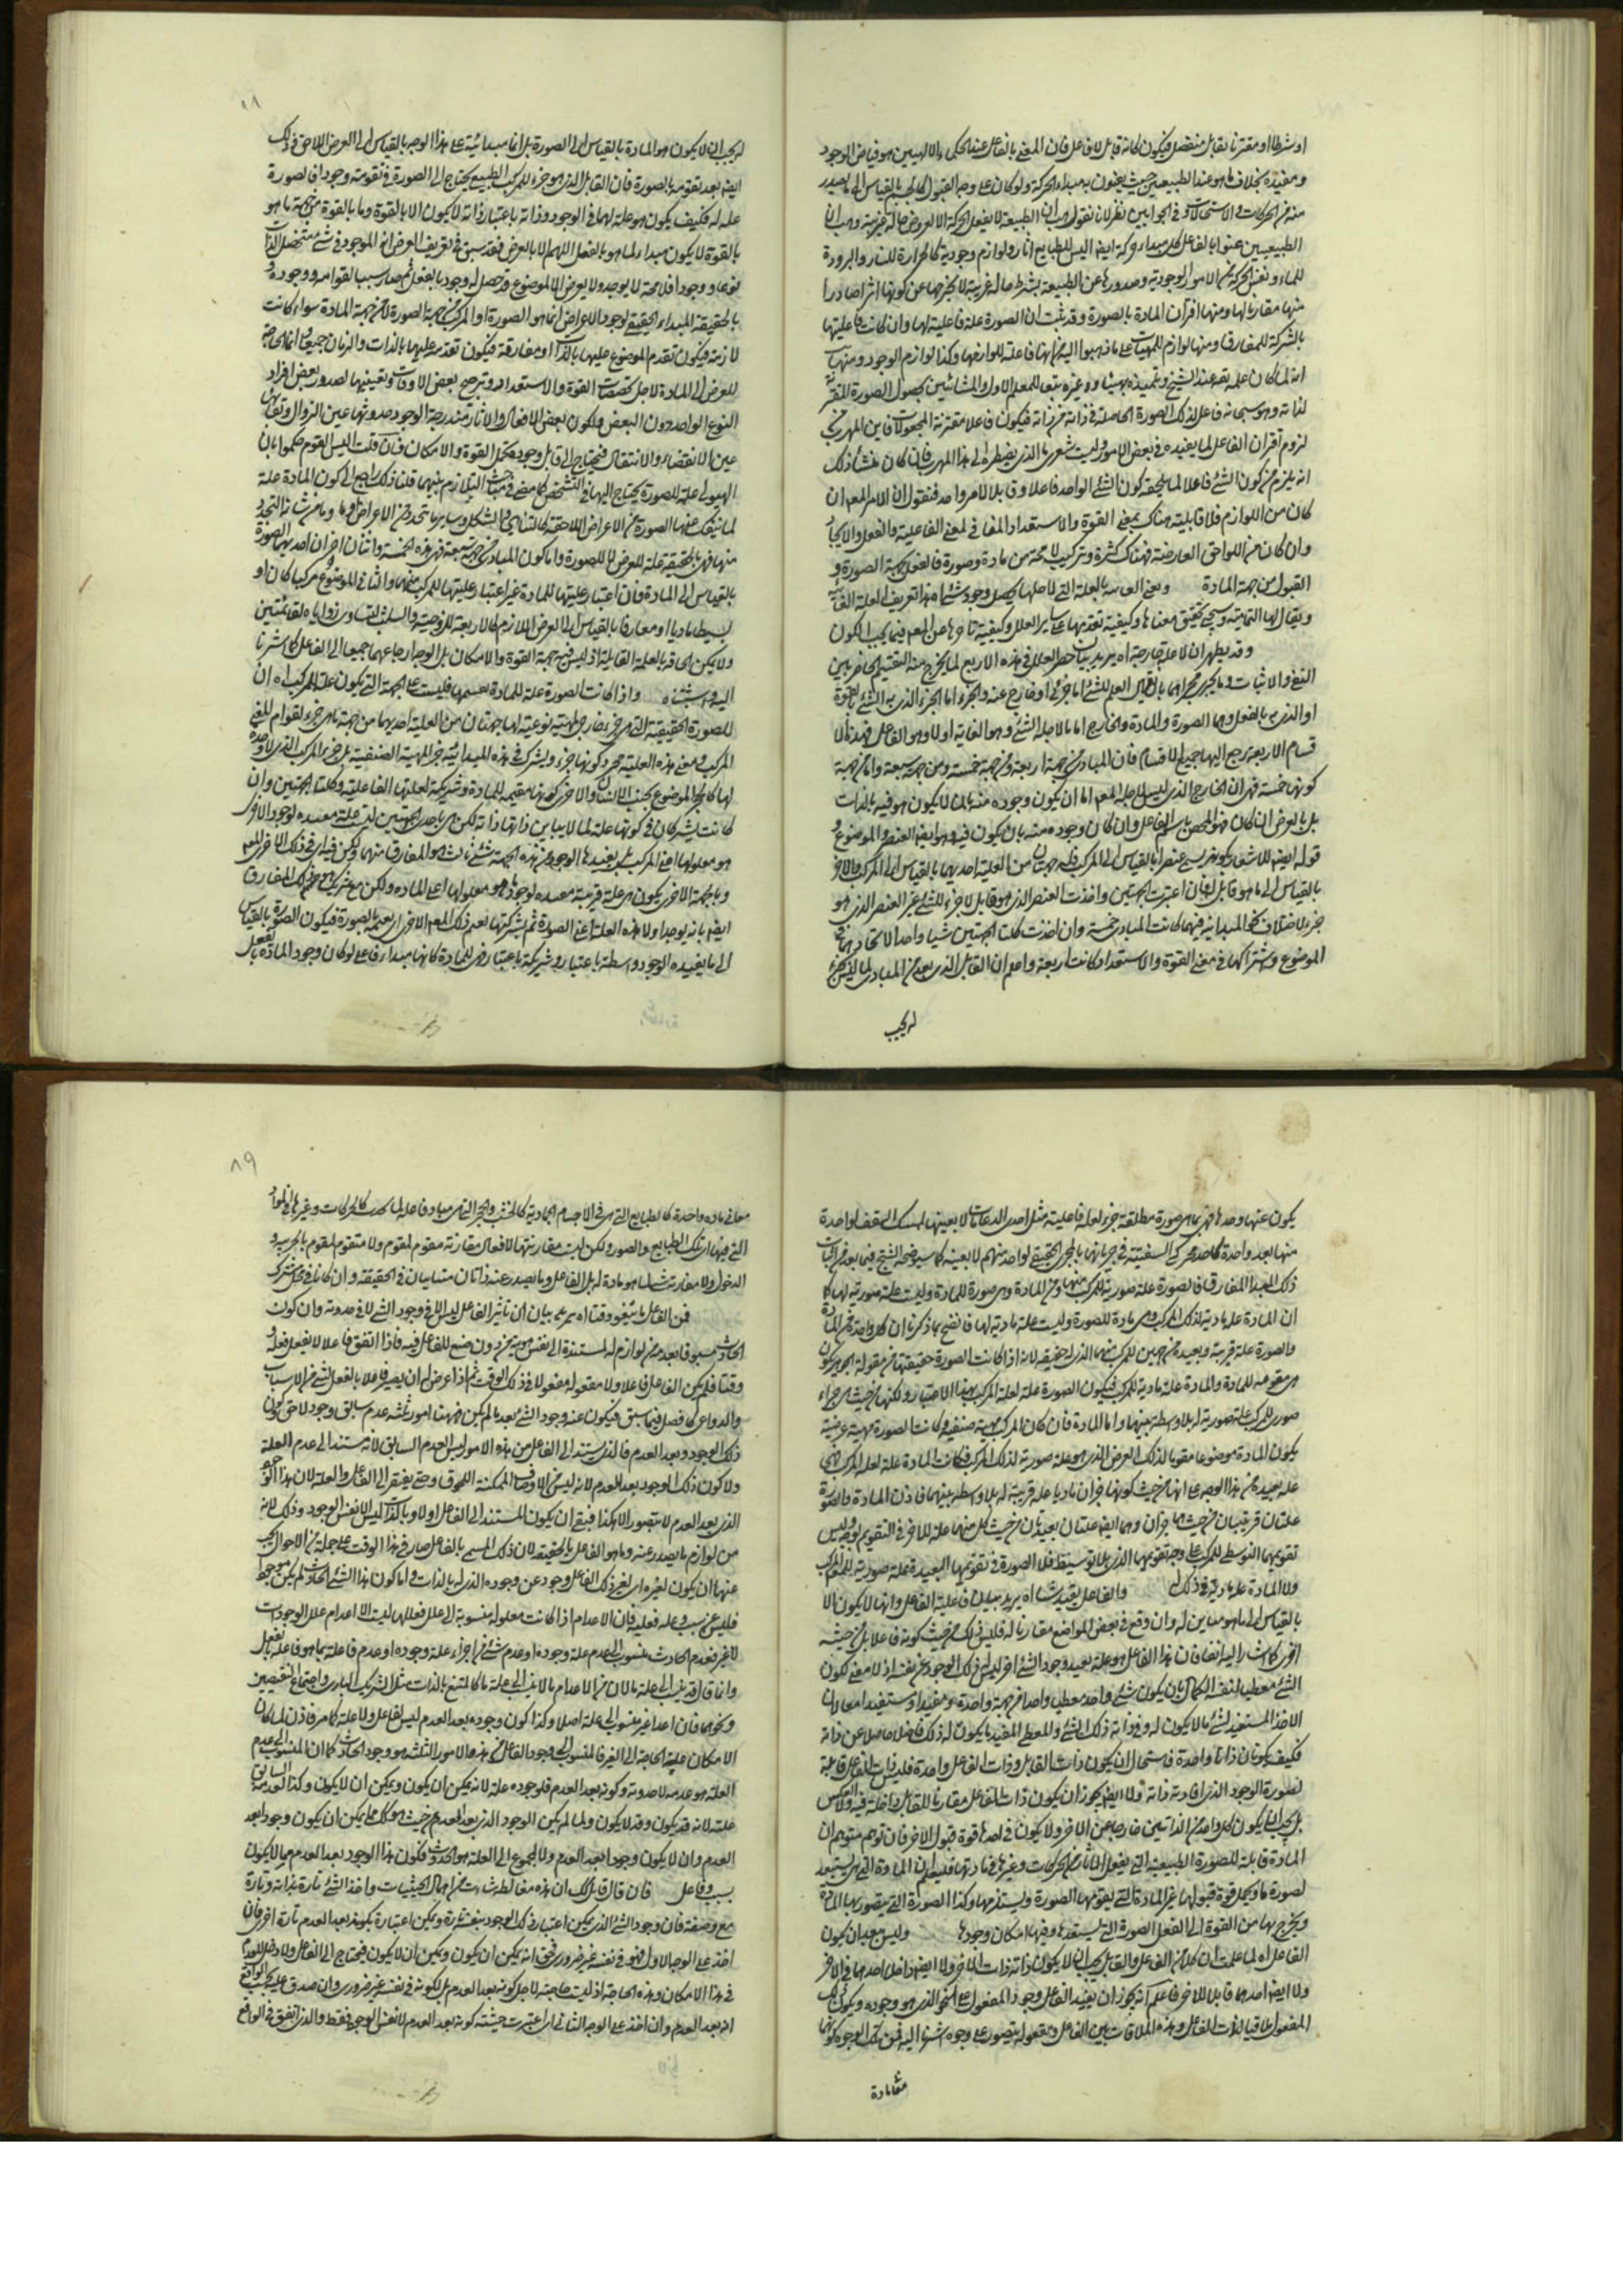 او شرطا او مقترنا بقابل منفصل فيكون كانه قابل لا فاعل فان المعنى بالفاعل عند الحكماء الالهيين هو فياض الوجود
ومفيده بخلاف ما هو عند الطبيعيين حيث يعنون به مبداء الحركة ولو كان على وجه القبول كالجسم بالقياس الى ما يصدر
منه من الحركات والاستحالات وفى الجوابين نظر لان نقول هب ان الطبيعة لا يفعل الحركة الا لعروض حالة غريبة وهب ان
الطبيعيين عنوا بالفاعل كل مبداء حركة ايضا اليس للطبايع اثار ولوازم وجودية كالحرارة للنار والبرودة
للماء ونفس الحركة من الامور الوجودية وصدورها عن الطبيعة بشرط حالة غريبة لا يخرجها عن كونها اثرا صادرا
منها مقارنا لها ومنها اقتران المادة بالصورة وقد ثبت ان الصورة علة فاعلية لها وان كانت فاعليتها
بالشركة للمفارق ومنها لوازم المهيات على ما ذهبوا اليه من انها فاعلة للوازمها وكذا لوازم الوجود ومنها
انه لما كان علمه تعالى عند الشيخ وتلميذه بهمنيار وغيره تبعا للمعلم الاول والمشائين بحصول الصورة المتقررة
لذاته وهو سبحانه فاعل لذلك الصورة الحاصلة فى ذاته من ذاته فيكون فاعلا مقترنة المجعولات فاين المهرب من
لزوم اقتران الفاعل لما يفيده فى بعض الامور وليت شعرى ما الذى يضطره الى هذا المهرب فان كان منشاء ذلك
انه يلزم من كون الشئ فاعلا لما يلحقه كون الشئ الواحد فاعلا وقابلا لامر واحد فنقول ان الامر المعلوم ان
كان من اللوازم فلا قابلية هناك بمعنى القوة والاستعداد المنافى لمعنى الفاعلية والفعل والايجاد
وان كان من اللواحق العارضة فهناك كثرة وتركيب لا محة من مادة وصورة فالفعل بجهة الصورة و
القبول من جهة المادة وبعنى الغاية بالعلة التى لاجلها يحصل وجود شئ اه هذا تعريف العلة الغائية
ويقال لها التمامية وسيجئ تحقيق معناها وكيفية تقدمها على ساير العلل وكيفية تاخرها عن المعلوم فيما يجب الكون
وقد يظهر ان لا علة خارجة اه يريد بيان حصر العلل فى هذه الاربع لما يخرج منه التقسيم الحاضر بين
النفى والاثبات وما يجرى مجراهما بالقياس العلم للشئ اما جزئى او خارج عنه والجزء اما الجزء الذى به الشئ بالقوة
او الذى به بالفعل وهما الصورة والمادة والخارج اما ما لاجله الشئ وهو الغاية او لا وهو الفاعل فهذه الا
قسام الاربعة يرجع اليها جميع الاقسام فان المبادى من جهة اربعة ومن جهة خمسة ومن جهة سبعة واما من جهة
كونها خمسة فهى ان الخارج الذى ليس لاجله المعلوم اما ان يكون وجوده منه بان لا يكون هو فيه بالذات
بل بالعرض ان كان فهو المخصص باسم الفاعل وان كان وجوده منه بان يكون فيه وهو ايضا العنصر والموضوع و
قوله ايضا للاشعار بكونه يسمى عنصرا بالقياس الى المركب فله جهتان من العلية احديهما بالقياس الى المركب والاخرى
بالقياس الى ما هو قابل له فان اعتبرت الجهتين واخذت العنصر الذى هو قابل لا جزء للشئ غير العنصر الذى هو
جزء لاختلاف نحو المبدائية فيهما كانت المبادى خمسة وان اخذت كلتا الجهتين شيا واحدا لاتحادهما فى
الموضوع واشتراكهما فى معنى القوة والاستعداد كانت اربعة واعلم ان القابل الذى يعد من المبادى لما ليس بجزء
له يجب
له يجب ان لا يكون هو المادة بالقياس الى الصورة بل انما مبدائيته على هذا الوجه بالقياس الى العرض اللاحق وذلك
ايضا بعد تقومه بالصورة فان القابل الذى هو جزء للمركب الطبيعى يحتاج الى الصورة فى تقومه وجودا فالصورة
علة له فكيف يكون هو علة لها فى الوجود وذاته باعتبار ذاته لا يكون الا بالقوة وما بالقوة من جهة ما هو
بالقوة لا يكون مبداء لما هو بالفعل اللهم الا بالعرض فقد سبق فى تعريف العرض انه الموجود فى شئ متحصل الذات
نوعا ووجودا فلا محة لا يوجد ولا يعرض الا لموضوع وتحصل له وجود بالفعل ثم صار سببا لقوامه ووجوده و
بالحقيقة المبداء الحقيقى لوجود الاعراض انما هو الصورة او المركب من جهة الصورة لا من جهة المادة سواء كانت
لازمة فيكون تقدم الموضوع عليها بالذات او مفارقة فيكون تقدمه عليها بالذات والزمان جميعا وانما الحاجة
للعرض الى المادة لاجل تخصصات القوة والاستعداد وترجح بعض الاوقات وتعيينها لصدور بعض افراد
النوع الواحد دون البعض ولكون بعض الافعال والاثار متدرجة الوجود حدوثها عين الزوال وبقائها
عين الانقضاء والانتقال فيحتاج الى قابل وجوده يحمل القوة والامكان فان قلت اليس القوم حكموا بان
الهيولى علة للصورة يحتاج اليها فى التشخص كما مضى فى مباحث التلازم بينهما قلنا ذلك راجع الى كون المادة علة
لما ينفك عنها الصورة من الاعراض اللاحقة كالتناهى والشكل وساير ما يتحدد من الاعراض وما من شانه التجدد
منها فهى بالحقيقة علة للعرض لا للصورة واما كون المبادى من جهة سبعة فهى هذه الخمسة واثنان اخران احديهما الصورة
بالقياس الى المادة فان اعتبار عليتها للمادة غير اعتبار عليتها للمركب منهما والثانى الموضوع مركبا كان او
بسيطا ماديا او مفارقا بالقياس الى العرض اللازم كالاربعة للزوجية والمثلث لتساوى زواياه لقائمتين
ولا يمكن الحاقه بالعلة القابلة اذ ليس فيه جهة القوة والامكان بل الوجه ارجاعهما جميعا الى الفاعل كما اشرنا
اليه واذا كانت الصورة علة للمادة تقيمها فليست على الجهة التى يكون علة للمركب اه ان
للصورة الحقيقية التى هى جزء خارجى لطبيعة نوعية لها جهتان من العلية احديهما من جهة ما هى جزء لقوام للمعنى
المركب ومعنى هذه العلية مجرد كونها جزء ويشترك فى هذه المبدائية جزء المهية الصنفية بل جزء المركب الذى لا وحدة
لها كالحجر الموضوع بجنب الانسان والاخرى كونها مقيمة للمادة وشريكة لعلتها الفاعلية وكلتا الجهتين وان
كانت يشتركان فى كونها علة لما لا يباين ذاتها ذاته لكن هى باحدى الجهتين ليست علة مفيدة لوجود الاخر
هو معلولها اعنى المركب بل يفيدها الوجود من هذه الجهة شئ ثالث هو المفارق منهما ولكن فيه اى فى ذلك الاخر المعلوم
وبالجهة الاخرى يكون هى علة قريبة مفيدة لوجود ما هو معلولها اعنى المادة ولكن مع شريك هو ذلك المفارق
ايضا بانه يوجد اولا هذه العلة اعنى الصورة ثم بشركتها يقيم ذلك المعلوم الاخر اى يقيمه بالصورة فيكون الصورة بالقياس
الى ما يفيده الوجود واسطة باعتبار وشريكة باعتبار فهى للمادة كانها مبداء فاعلى لو كان وجود المادة بالفعل
٨٩
يكون عنها وحدها فهى بما هى صورة مطلقة جزء لعلة فاعلية مثل احدى الدعامات لا بعينها لمسك السقف لواحدة
منها بعد واحدة كاحد محركى السفينة فى جريانها بالمجرى الحقيقى لواحد منهم لا بعينه كما سيوضحه الشيخ فيما بعد من اثبات
ذلك المبدا المفارق فالصورة علة صورية للمركب منها ومن المادة وهى صورة للمادة وليست علة صورية لها كما
ان المادة علة مادية لذلك المركب وهى مادة للصورة وليست علة مادية لها فاتضح بما ذكرنا ان كل واحدة من المادة
والصورة علة قريبة وبعيدة من جهتين للمركب منهما الذى له حقيقة لانه اذا كانت الصورة حقيقتها من مقولة الجوهر يكون
هى مقومة للمادة والمادة علة مادية للمركب فيكون الصورة علة لعلة المركب بهذا الاعتبار ولكنها من حيث هى جزء
صورى للمركب علة صورية له بلا وسطة بينهما واما المادة فان كان المركب مهية صنفية وكانت الصورة مهية عرضية
يكون المادة موضوعا مقوما لذلك العرض الذى هو علة صورية لذلك المركب فكانت المادة علة لعلة المركب فهى
علة بعيدة من هذا الوجه على انها من حيث كونها جزءا ماديا علة قريبة له بلا وسطة بينهما فاذن المادة والصورة
علتان قريبتان من حيث هما جزءان وهما ايضا علتان بعيدتان من حيث كل منهما علة للاخر فى التقويم بوجه وليس
تقويمها التوسطى للمركب على وجه تقويمها الذى بلا توسيط فلا الصورة فى تقويمها البعيدة علة صورية للمركب
ولا المادة علة مادية فى ذلك والفاعل يفيد شيا اه يريد بيان فاعلية الفاعل وانها لا يكون الا
بالقياس الى ما هو مباين له وان وقع فى بعض المواضع مقارنا له فليس ذلك من حيث كونه فاعلا بل من حيثية
اخرى كما اشار اليه انفا فان هذا الفاعل هو علة يفيد وجود الشئ اخر ليس له ذلك الوجود عن نفسه اذ لا معنى لكون
الشئ معطيا لنفسه الكمال بان يكون شئ واحد معطيا واخذا من جهة واحدة ومفيدا ومستفيدا معا لان
الاخذ المستفيد لشئ ما لا يكون له وفى ذاته ذلك الشئ والمعطى المفيد ما يكون له ذلك فاضلا حاصلا عن ذاته
فكيف يكونان ذاتا واحدة فاستحال ان يكون ذات القابل وذات الفاعل واحدة فليس ذات الفاعل قابلة
لصورة الوجود الذى افادته ذاته ولا ايضا يجوز ان يكون ذات الفاعل مقارنا للقابل داخلة فيه ولا العكس
بل يجب ان يكون كل واحد من الذاتين خارجا عن الاخر ولا يكون فى احدهما قوة قبول الاخر فان توهم متوهم ان
المادة قابلة للصورة الطبيعية التى يفعل الاثار من الحركات وغيرها فى مادتها فليعلم ان المادة التى هى يستعد
لصورة ما ويحمل قوة قبولها غير المادة التى يقومها الصورة ويستلزمها وكذا الصورة التى يتصور بها المادة
ويخرج بها من القوة الى الفعل الصورة التى يستعد لها وفيها امكان وجودها وليس ببعيد ان يكون
الفاعل اه لما علمت ان كلا من الفاعل والقابل يجب ان لا يكون ذاته ذات الاخر ولا ايضا داخل احدهما فى الاخر
ولا ايضا احدهما قابلا للاخر فاعلم انه يجوز ان يفيد الفاعل وجود المفعول على النحو الذى هو وجوده ويكون ذلك
المفعول ملاقيا لذات الفاعل وهذه الملاقات بين الفاعل ومفعوله يتصور على وجوه اشرنا اليه فمن تلك الوجوه كونهما
معا فى مادة
معا فى مادة واحدة كالطبايع التى هى فى الاجسام الجمادية كالخشب والحجر التى هى مباد فاعلية لما يحدث كالحركات وغيرها فى المواد
التى فيها اى تلك الطبايع والصور ولكن ليست مقارنتها للافعال مقارنة مقوم لمقوم ولا متقوم لمقوم بالجزئية و
الدخول ولا مقارنة شئ لما هو مادة له بل الفاعل وما يصدر عنه ذاتان متباينان فى الحقيقة وان كانا فى محل مشترك
فمن الفاعل ما يتفق وقتا اه يريد بيان ان تاثير الفاعل ليس الا فى وجود الشئ لا فى حدوثه وان كون
الحادث مسبوقا بعدم من لوازمه المستندة الى نفس هويته من دون صنع للفاعل فيه فاذا اتفق فاعلا لا يفعل فعلا
وقتا فلم يكن الفاعل فاعلا ولا مفعوله مفعولا فى ذلك الوقت ثم اذا عرض له ان يصير فاعلا بالفعل لشئ من الاسباب
والدواعى كما فصل فيما سبق فيكون عنه وجود الشئ بعد ما لم يكن فههنا امور ثلثة عدم سابق وجود لاحق وكون
ذلك الوجود بعد العدم فالذى يستند الى الفاعل من هذه الامور ليس العدم السابق لانه مستند الى عدم العلة
ولا كون ذلك الوجود بعد العدم لانه ليس من الاوصاف الممكنة اللحوق حتى يفتقر الى الفاعل والعلة لان هذا الوجود
الذى بعد العدم لا يتصور الا هكذا فبقى ان يكون المستند الى الفاعل اولا وبالذات ليس الا نفس الوجود وذلك لانه
من لوازم ما يصدر عنه وما هو الفاعل بالحقيقة لان ذلك المسمى بالفاعل صار فى هذا الوقت على جملة من الاحوال يجب
عنها ان يكون لغيره اى لغير ذلك الفاعل وجود عن وجوده الذى له بالذات واما كون هذا الشئ الحادث لم يكن موجودا
فليس عن سبب وعلة فعلية فان الاعدام اذا كانت معلولة منسوبة الى علل فعللها ليست الا اعدام علل الوجودات
لا غير فعدم الحادث منسوب الى عدم علة وجوده او عدم شئ من اجزاء علة وجوده او عدم فاعلة بما هو فاعله بالفعل
وانما قال قد ينسب الى علة ما لان من الاعدام ما لا ينسب الى علة ما كالممتنع بالذات مثل شريك البارى واجتماع النقيضين
ونحوهما فان اعدامها غير منسوب الى علة اصلا وكذا كون وجوده بعد العدم ليس لفاعل ولا علة كما مر فاذن لما كان
الامكان علة الحاجة الى الغير فالمنسوب الى وجود الفاعل من هذه الامور الثلثة هو وجود الحادث كما ان المنسوب الى عدم
العلة هو عدمه لا حدوثه وكونه بعد العدم فلوجوده علة لانه يمكن ان يكون ويمكن ان لا يكون وكذا لعدمه السابق
علة لانه قد يكون وقد لا يكون ولما لم يكن الوجود الذى بعد العدم من حيث هو كك مما يمكن ان يكون وجودا بعد
العدم وان لا يكون وجودا بعد العدم ولا المحوج الى العلة هو الحدوث فكون هذا الوجود بعد العدم مما لا يكون
بسبب وفاعل فان قال قائل ان هذه مغالطة نشات من اهمال الحيثيات واخذ الشئ تارة بذاته وتارة
مع وصفه فان وجود الشئ الذى يمكن اعتبار ذلك الوجود بنفسه تارة ويمكن اعتباره بكونه بعد العدم تارة اخرى فان
اخذ على الوجه الاول فهو فى نفسه غير ضرورى فيحق انه يمكن ان يكون ويمكن ان لا يكون فيحتاج الى الفاعل ولا دخل للعدم
فى هذا الامكان وهذه الحاجة اذ ليست حاجته لاجل كونه بعد العدم بل لكونه فى نفسه غير ضرورى وان صدق عليه بحسب الواقع
انه بعد العدم وان اخذ على الوجه الثانى اى اعتبرت حيثيته كونه بعد العدم لا نفس الوجود فقط والذى اتفق فى الواقع